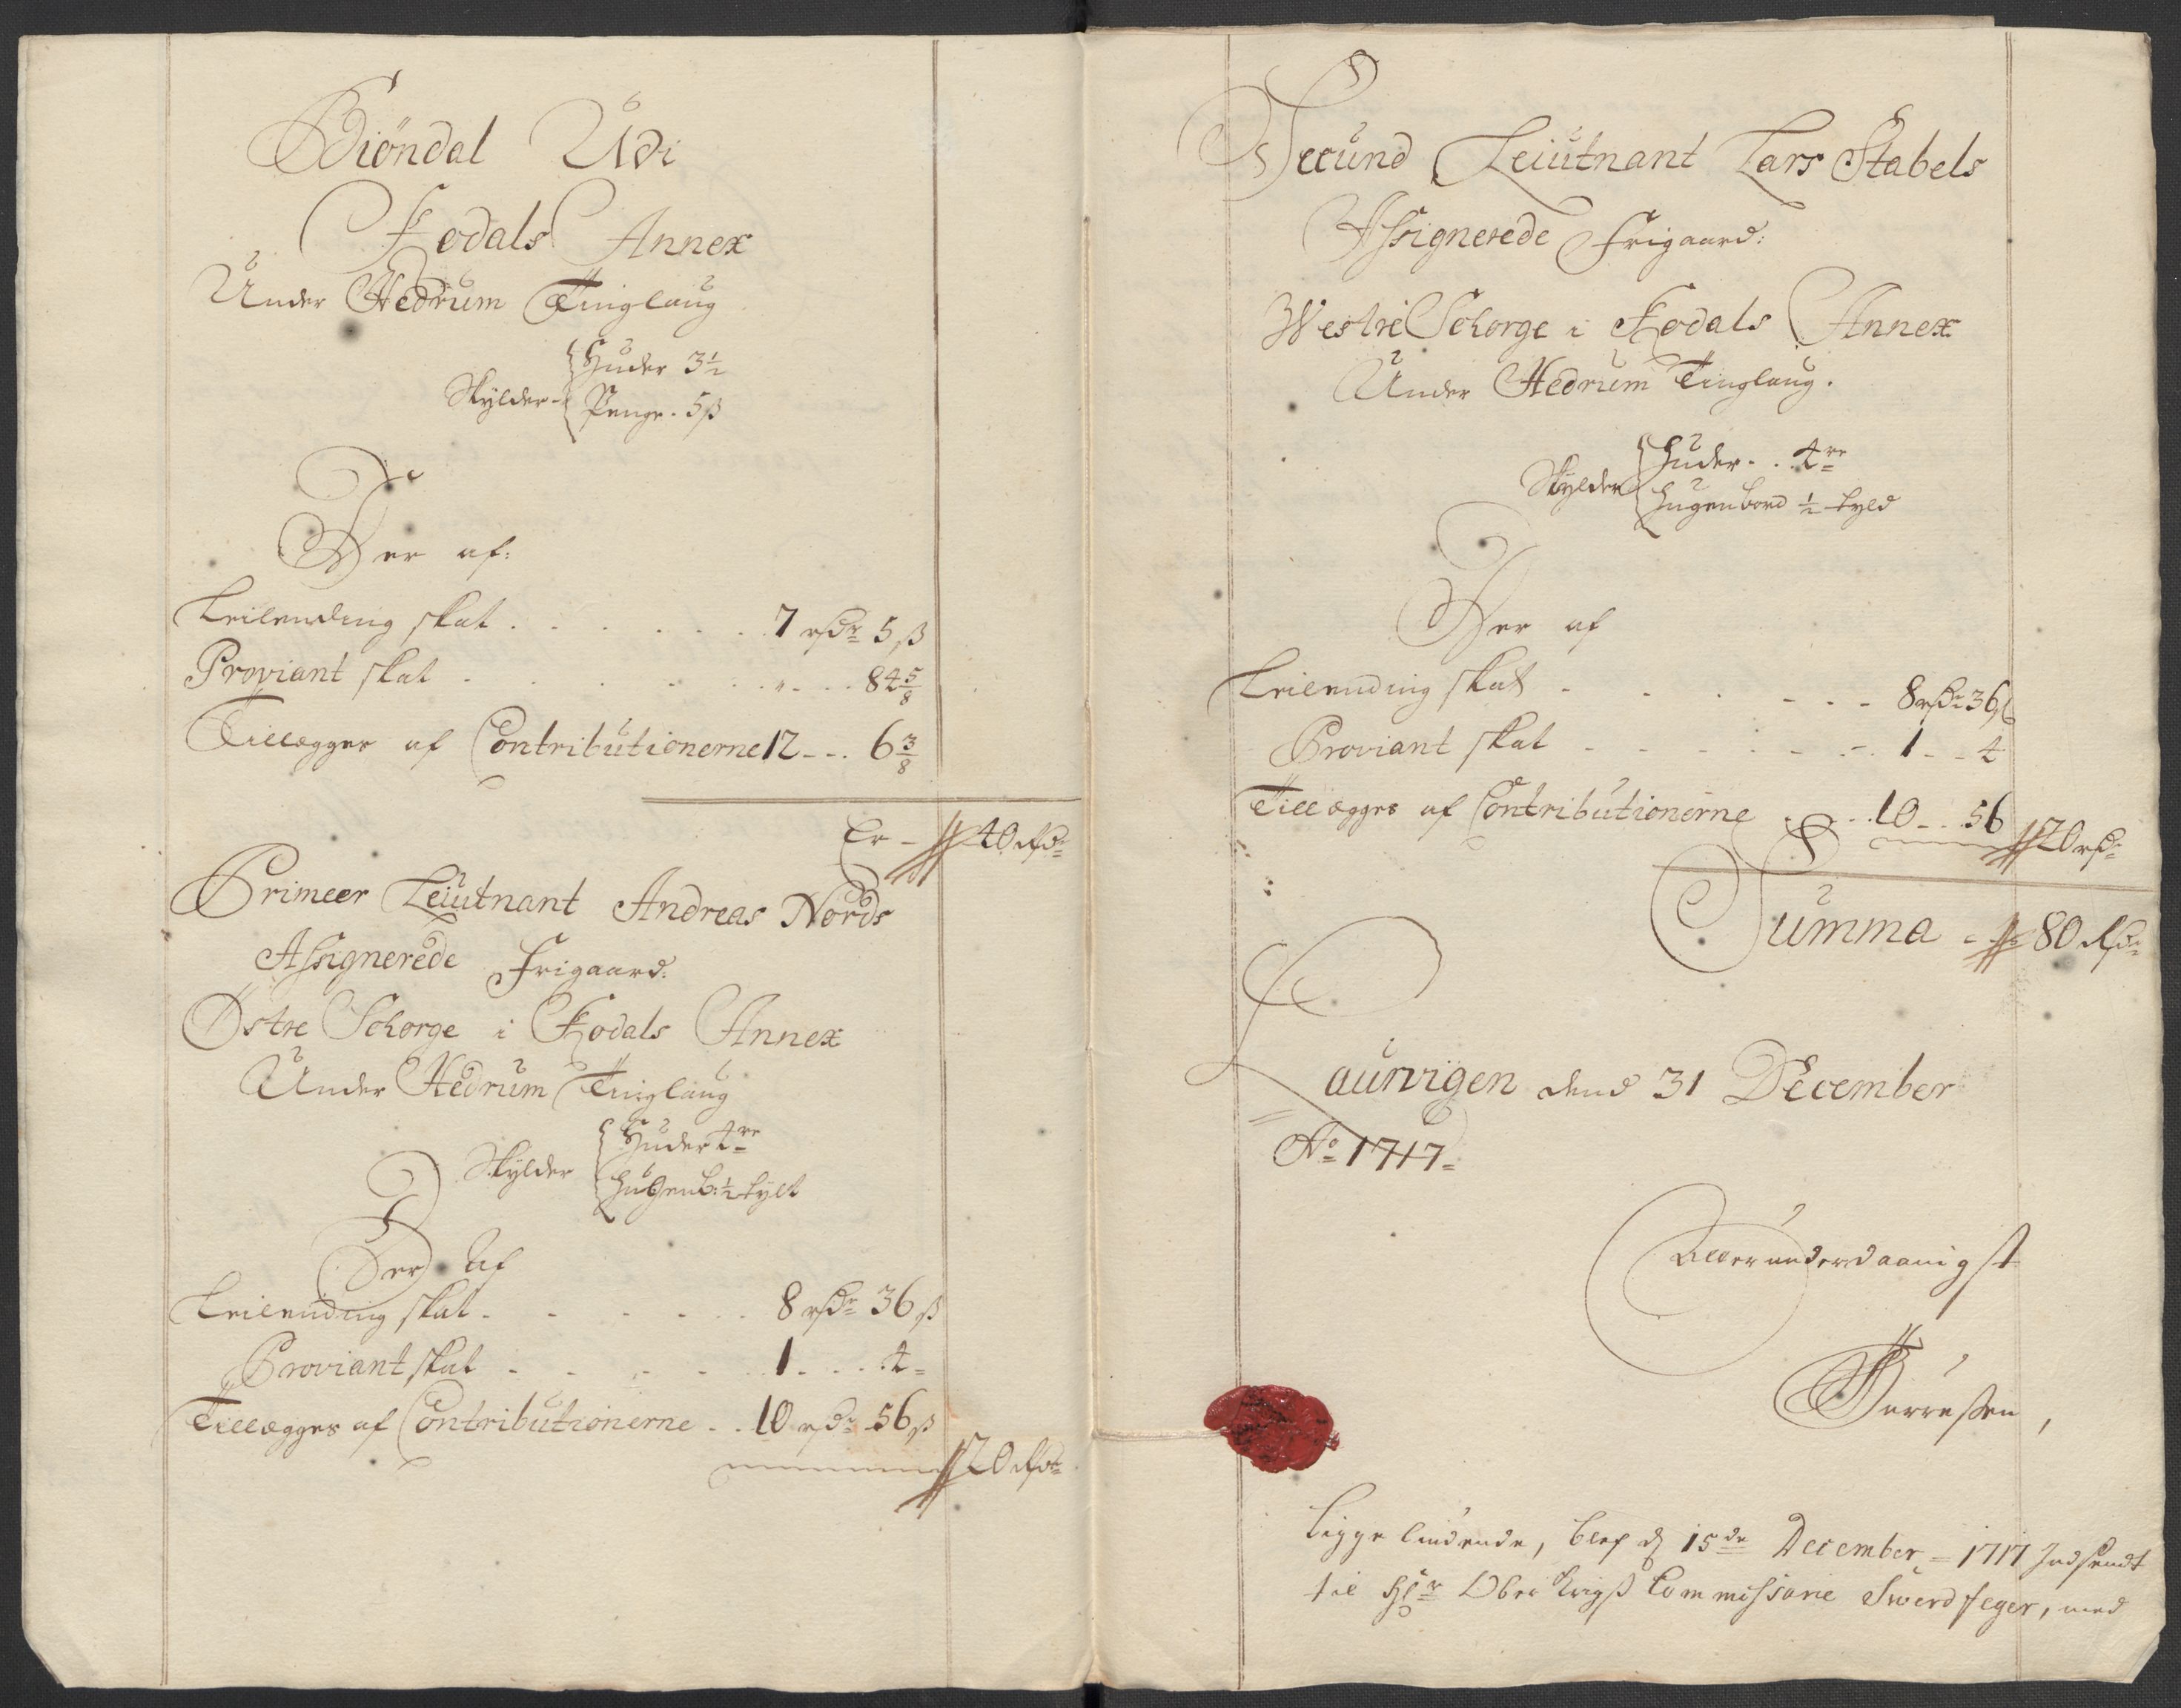 Biöndal Udi
Kodals Annex
Under Hedrum Tinglaug
Skylder - { Huder 3½
Penge - 5 ß
Der af:
Leilending skat . . . . . . 7 rdr 5 ß
Proviant skat . . . . . „ . . . 84⅝
Tillegges af Contributionerne 12 - - . 6⅜
Er - 40 rdr
Primeer Leiutnant Andreas Nords
Assignerede Frigaard:
Østre Schorge i Kodals Annex
Under Hedrum Tinglaug
Skylder { Huder 4re
Hugenb: ½ tylt
Der Af
Leilending skat . . . . . . 8 rdr 36 ß
Proviant skat . . . . . . 1 . . . 4
Tillegges af Contributionerne . . 10 rdr 56 ß
20 rdr
Secund Leiutnant Lars Stabels
Assignerede Frigaard:
Westre Schorge i Kodals Annex
Under Hedrum Tinglaug.
Skylder { Huder . . 4re
Hugenbord ½ tyld
Der af
Leilending skat . . . . . . 8 rdr 36 ß
Proviant skat . . . . . . 1 - - 4
Tillegges af Contributionerne . . . 10 - - 56
20 rdr
Summa - 80 rdr
Laurvigen dend 31 December
Ao 1717
Allerunderdaanigst
Ligge lindende, blef d 15de December = 1717 Indsendt
til Hr Ober Krigs Commissarie Swerdfeger, med